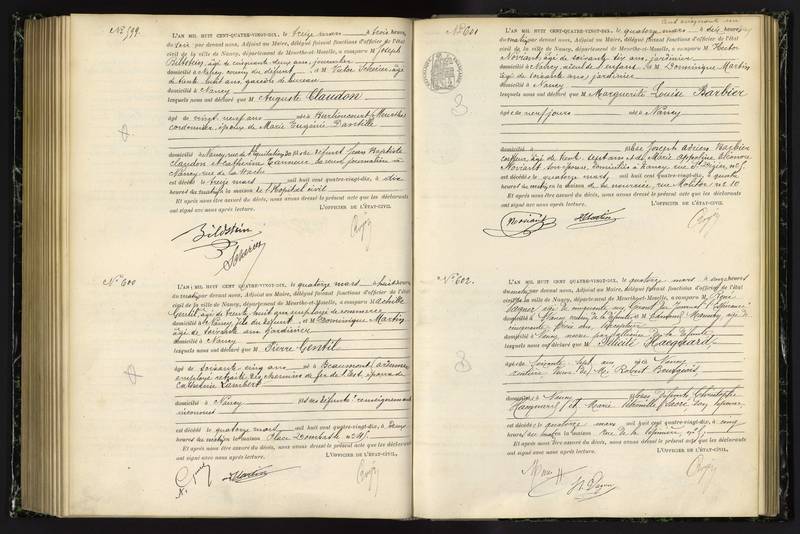 No 599.
L'AN MIL HUIT CENT QUATRE-VINGT-DIX, le treize mars à trois heures
du soir par devant nous, Adjoint au Maire, délégué faisant fonctions d'officier de l'état
civil de la ville de Nancy, département de Meurthe-et-Moselle, a comparu M Joseph
Bildstein, âgé de cinquante deux ans, journalier
domicilié à Nancy, cousin du défunt, et M Victor Scherer, âgé
de trente huit ans, garçon de bureau
domicilié à Nancy
lesquels nous ont déclaré que M Auguste Claudon
âgé de vingt neuf ans né à Burlioncourt (Meurthe)
cordonnier, époux de Marie Eugénie
domicilié à Nancy, rue de l'Equitation fils de défunt Jean Baptiste
Claudon et Catherine sa veuve, journalière à
Nancy rue de la
est décédé le treize mars mil huit cent quatre-vingt-dix, à
heures du matin en la maison de l'Hôpital civil
Et après nous être assuré du décès, nous avons dressé le présent acte que les déclarants
ont signé avec nous après lecture. L'OFFICIER DE L'ÉTAT-CIVIL,
Bildstein
Scherer
No 600
L'AN MIL HUIT CENT QUATRE-VINGT-DIX, le quatorze mars à huit heures
du matin par devant nous, Adjoint au Maire, délégué faisant fonctions d'officier de l'état
civil de la ville de Nancy, département de Meurthe-et-Moselle, a comparu M Achille
Gentil, âgé de trente huit ans employé de commerce
domicilié à Nancy, fils du défunt, et M Dominique Martin
âgé de soixante ans jardinier
domicilié à Nancy
lesquels nous ont déclaré que M Pierre Gentil
âgé de soixante cinq ans né à Beaumont (Ardennes)
employé retraité des chemins de fer de l'Est, époux de
Catherine Lambert
domicilié à Nancy fils de défunts renseignements
inconnus
est décédé le quatorze mars mil huit cent quatre-vingt-dix, à deux
heures du matin en la maison Place Dombasle no 11
Et après nous être assuré du décès, nous avons dressé le présent acte que les déclarants
ont signé avec nous après lecture. L'OFFICIER DE L'ÉTAT-CIVIL,
Martin
No 601
L'AN MIL HUIT CENT QUATRE-VINGT-DIX, le quatorze mars à dix heures
du matin par devant nous, Adjoint au Maire, délégué faisant fonctions d'officier de l'état
civil de la ville de Nancy, département de Meurthe-et-Moselle, a comparu M Hector
Noviant, âgé de soixante six ans, jardinier
domicilié à Nancy, aïeul de l'enfant, et M Dominique Martin
âgé de soixante ans, jardinier
domicilié à Nancy
lesquels nous ont déclaré que M Marguerite Louise Barbier
âgée de neuf jours née à Nancy
domicilié à fille de Joseph Adrien Barbier
coiffeur, âgé de trente sept ans et de Marie Appoline Eléonore
Noviant son épouse, domiciliés à Nancy rue St Dizier, no
est décédée le quatorze mars, mil huit cent quatre-vingt-dix, à quatre
heures du matin en la maison de sa nourrice, rue Molitor no 10
Et après nous être assuré du décès, nous avons dressé le présent acte que les déclarants
ont signé avec nous après lecture. L'OFFICIER DE L'ÉTAT-CIVIL,
Noviant
Martin
No 602.
L'AN MIL HUIT CENT QUATRE-VINGT-DIX, le quatorze mars à onze heures
du matin par devant nous, Adjoint au Maire, délégué faisant fonctions d'officier de l'état
civil de la ville de Nancy, département de Meurthe-et-Moselle, a comparu M René
âgé de cinquante ans Gérant du journal l'Espérance
domicilié à Nancy, de la défunte, et M âgé de
cinquante trois ans,
domicilié à Nancy
lesquels nous ont déclaré que M Félicité Hacquard
âgée de soixante sept ans née à Nancy
rentière veuve de M. Robert Bourgeois
domiciliée à Nancy fille de défunts Christophe
Hacquard et Marie
est décédée le quatorze mars mil huit cent quatre-vingt-dix, à cinq
heures du matin en la maison rue de la Pépinière no
Et après nous être assuré du décès, nous avons dressé le présent acte que les déclarants
ont signé avec nous après lecture. L'OFFICIER DE L'ÉTAT-CIVIL,